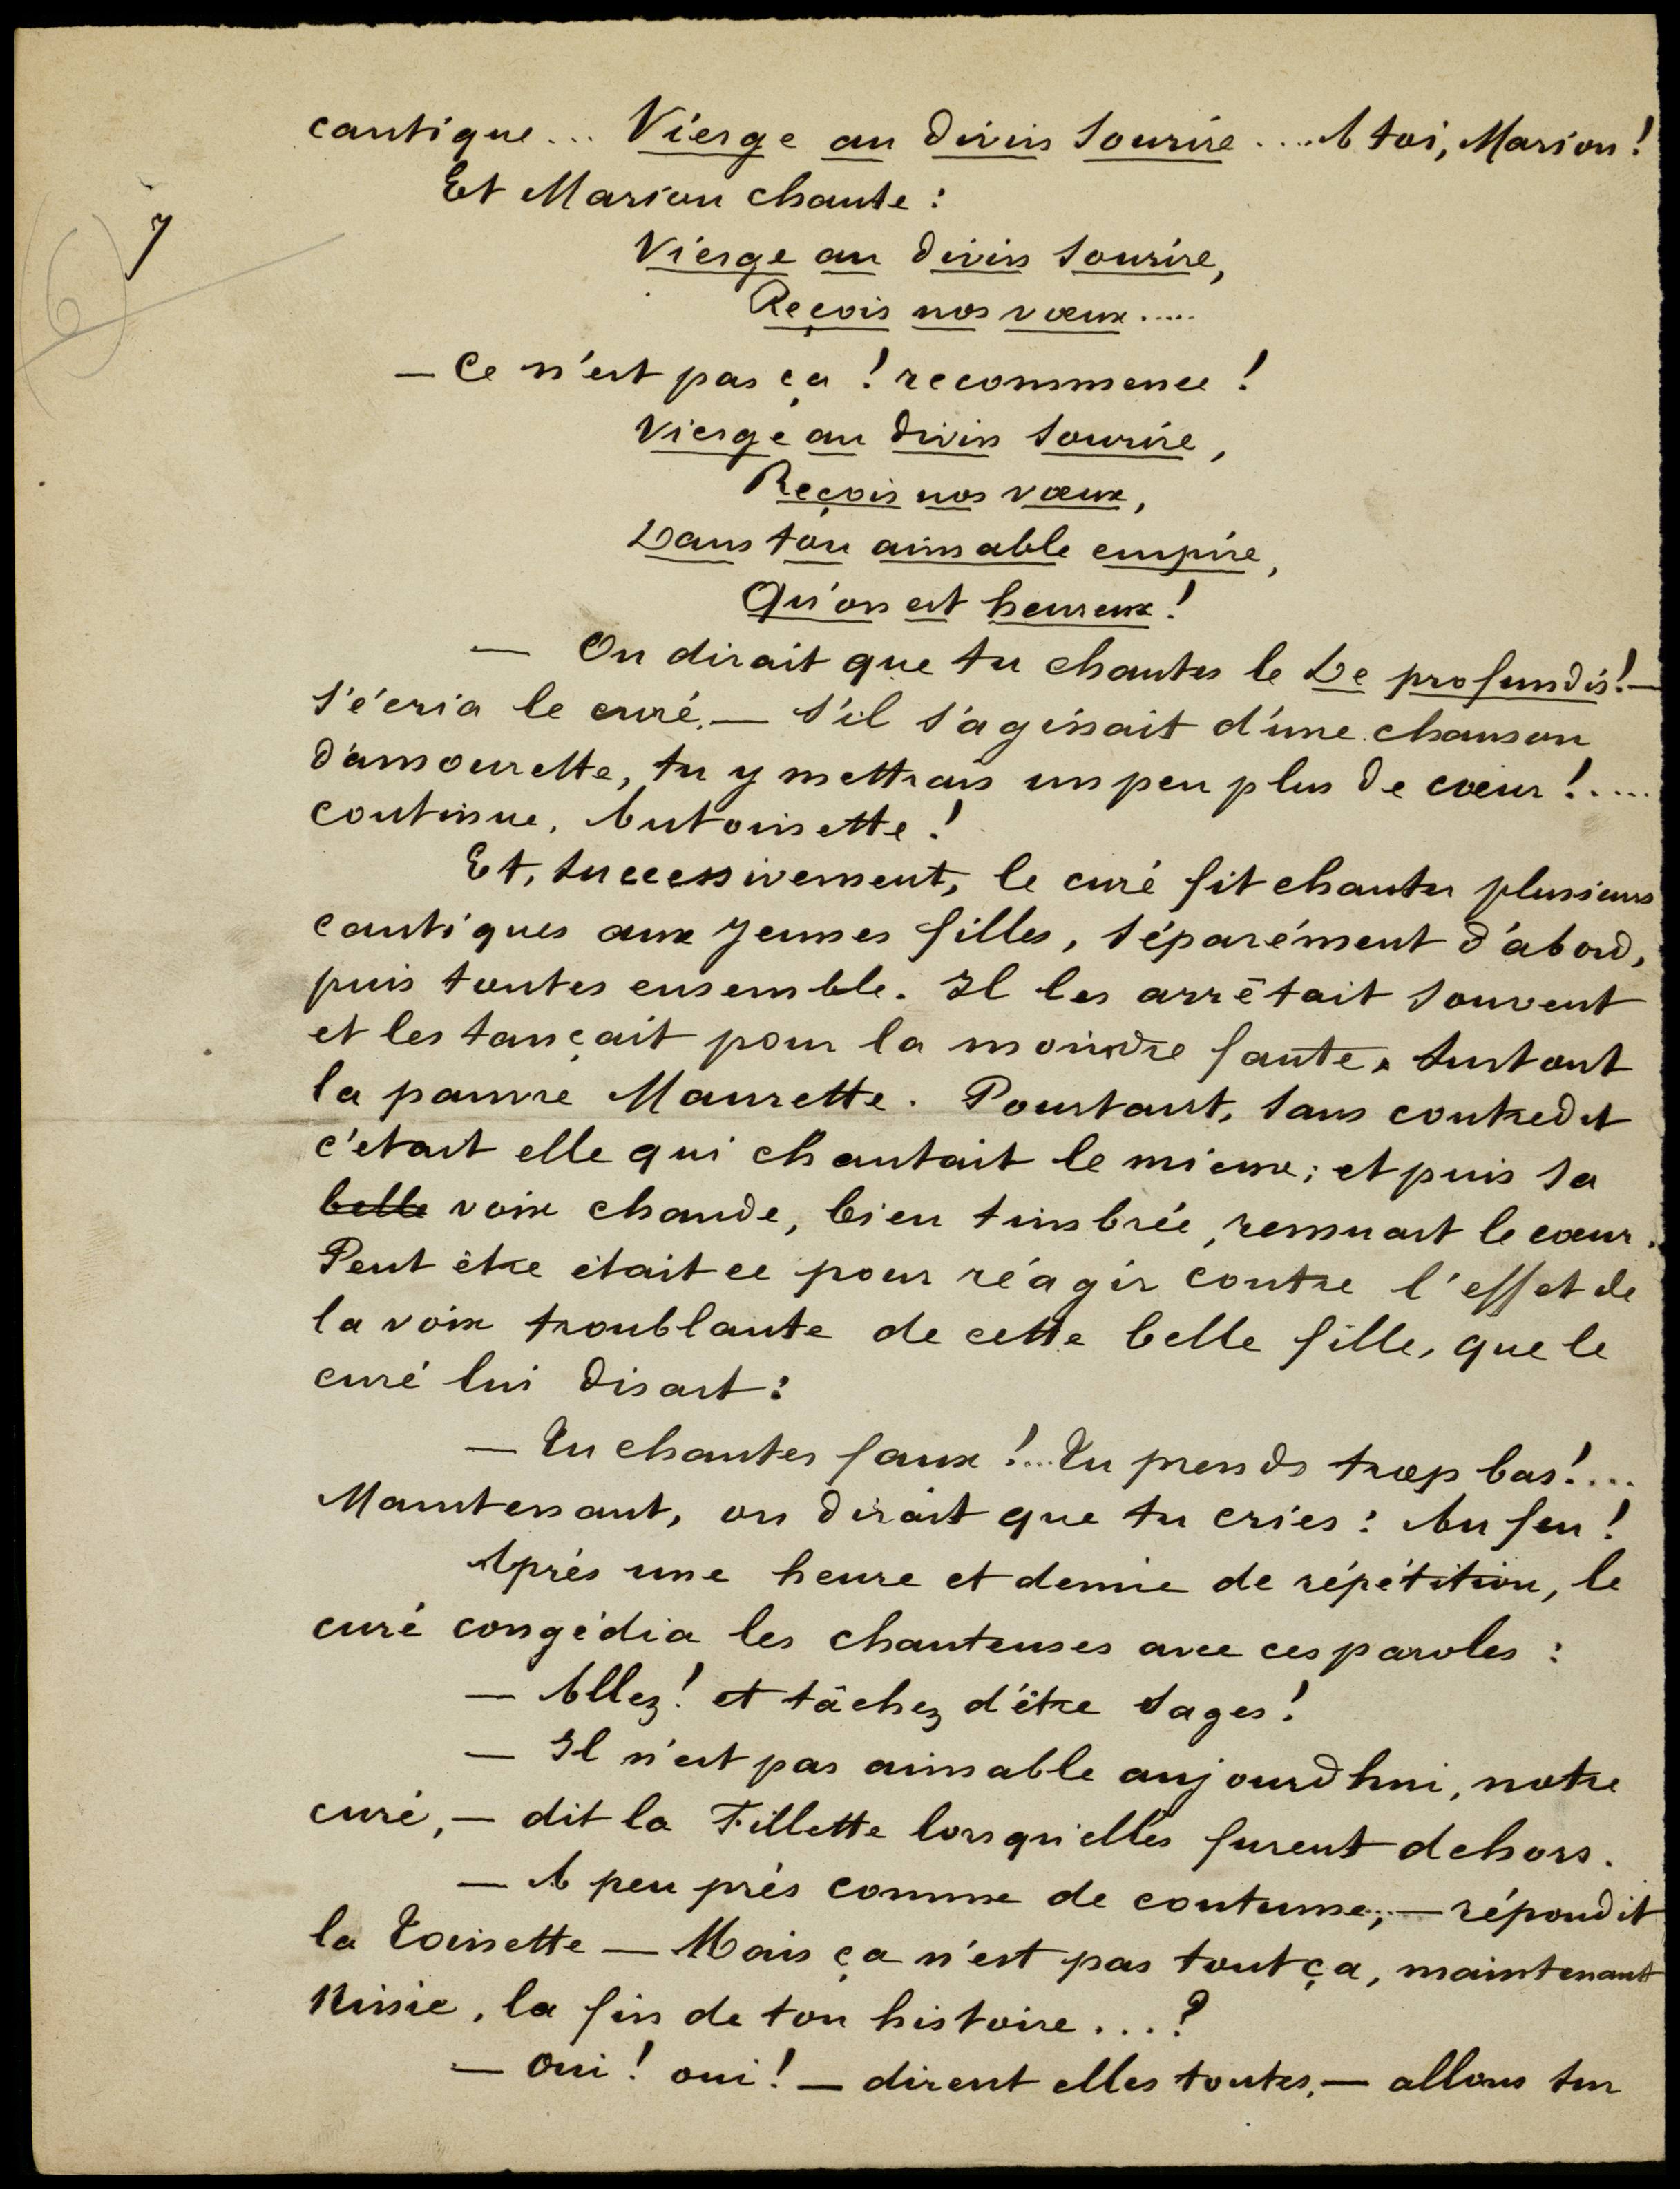 cantique... Vierge au divin sourire.... A toi, Marion!
Et Marion chante:
7
(6)
Vierge au divin sourire,
Reçois nos vœux.....
— Ce n'est pas ça! recommence!
Vierge au divin sourire,
Reçois nos vœux,
Dans ton aimable empire,
Qu'on est heureux!
— On dirait que tu chantes le De profundis!—
s'écria le curé.— S'il s'agissait d'une chanson
d'amourette, tu y mettrais un peu plus de cœur!.....
continue, Antoinette!
Et, successivement, le curé fit chanter plusieurs
cantiques aux jeunes filles, séparément d'abord,
puis toutes ensemble. Il les arrêtait souvent
et les tançait pour la moindre faute, surtout
la pauvre Maurette. Pourtant, sans contredit
c'était elle qui chantait le mieux; et puis sa
belle voix chaude, bien timbrée, remuait le cœur.
Peut être était ce pour réagir contre l'effet de
la voix troublante de cette belle fille, que le
curé lui disait:
— Tu chantes faux!... Tu prends trop bas!...
Maintenant, on dirait que tu cries: Au feu!
Après une heure et demie de répétition, le
curé congédia les chanteuses avec ces paroles:
— Allez! et tâchez d'être sages!
— Il n'est pas aimable aujourd'hui, notre
curé,— dit la Fillette lorsqu'elles furent dehors.
— A peu près comme de coutume;— répondit
la Toinette — Mais ça n'est pas tout ça, maintenant
Ninie, la fin de ton histoire...?
— Oui! oui!— dirent elles toutes,— allons sur